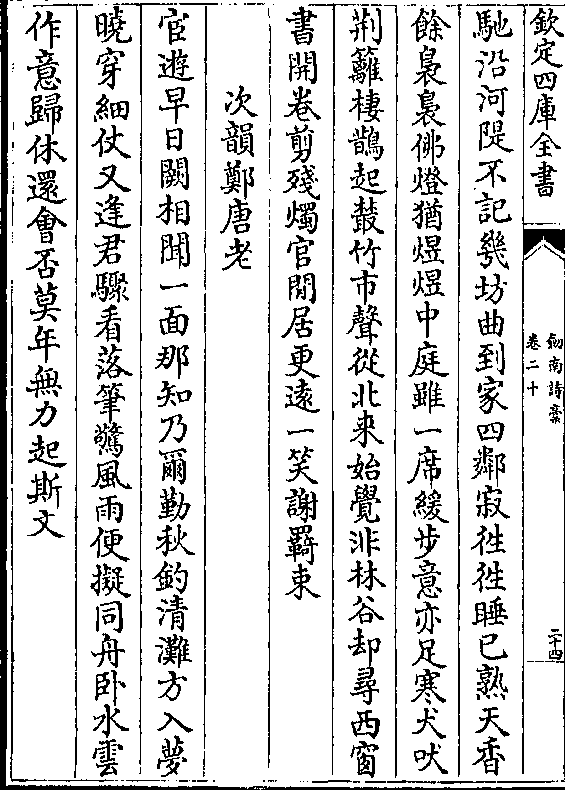 欽定四庫全書
劒南詩稾
卷二十
二十四
馳沿河隄不記幾坊曲到家四鄰寂徃徃睡已熟天香
餘裊裊佛燈猶煜煜中庭雖一席緩步意亦足寒犬吠
荆籬棲鵲起叢竹市聲從北来始覺非林谷却尋西窗
書開卷剪殘燭官閒居更逺一笑謝羇束
次韻鄭唐老
宦遊早日闕相聞一面那知乃爾勤秋釣清灘方入夢
曉穿細仗又逢君驟看落筆驚風雨便擬同舟卧水雲
作意歸休還會否莫年無力起斯文